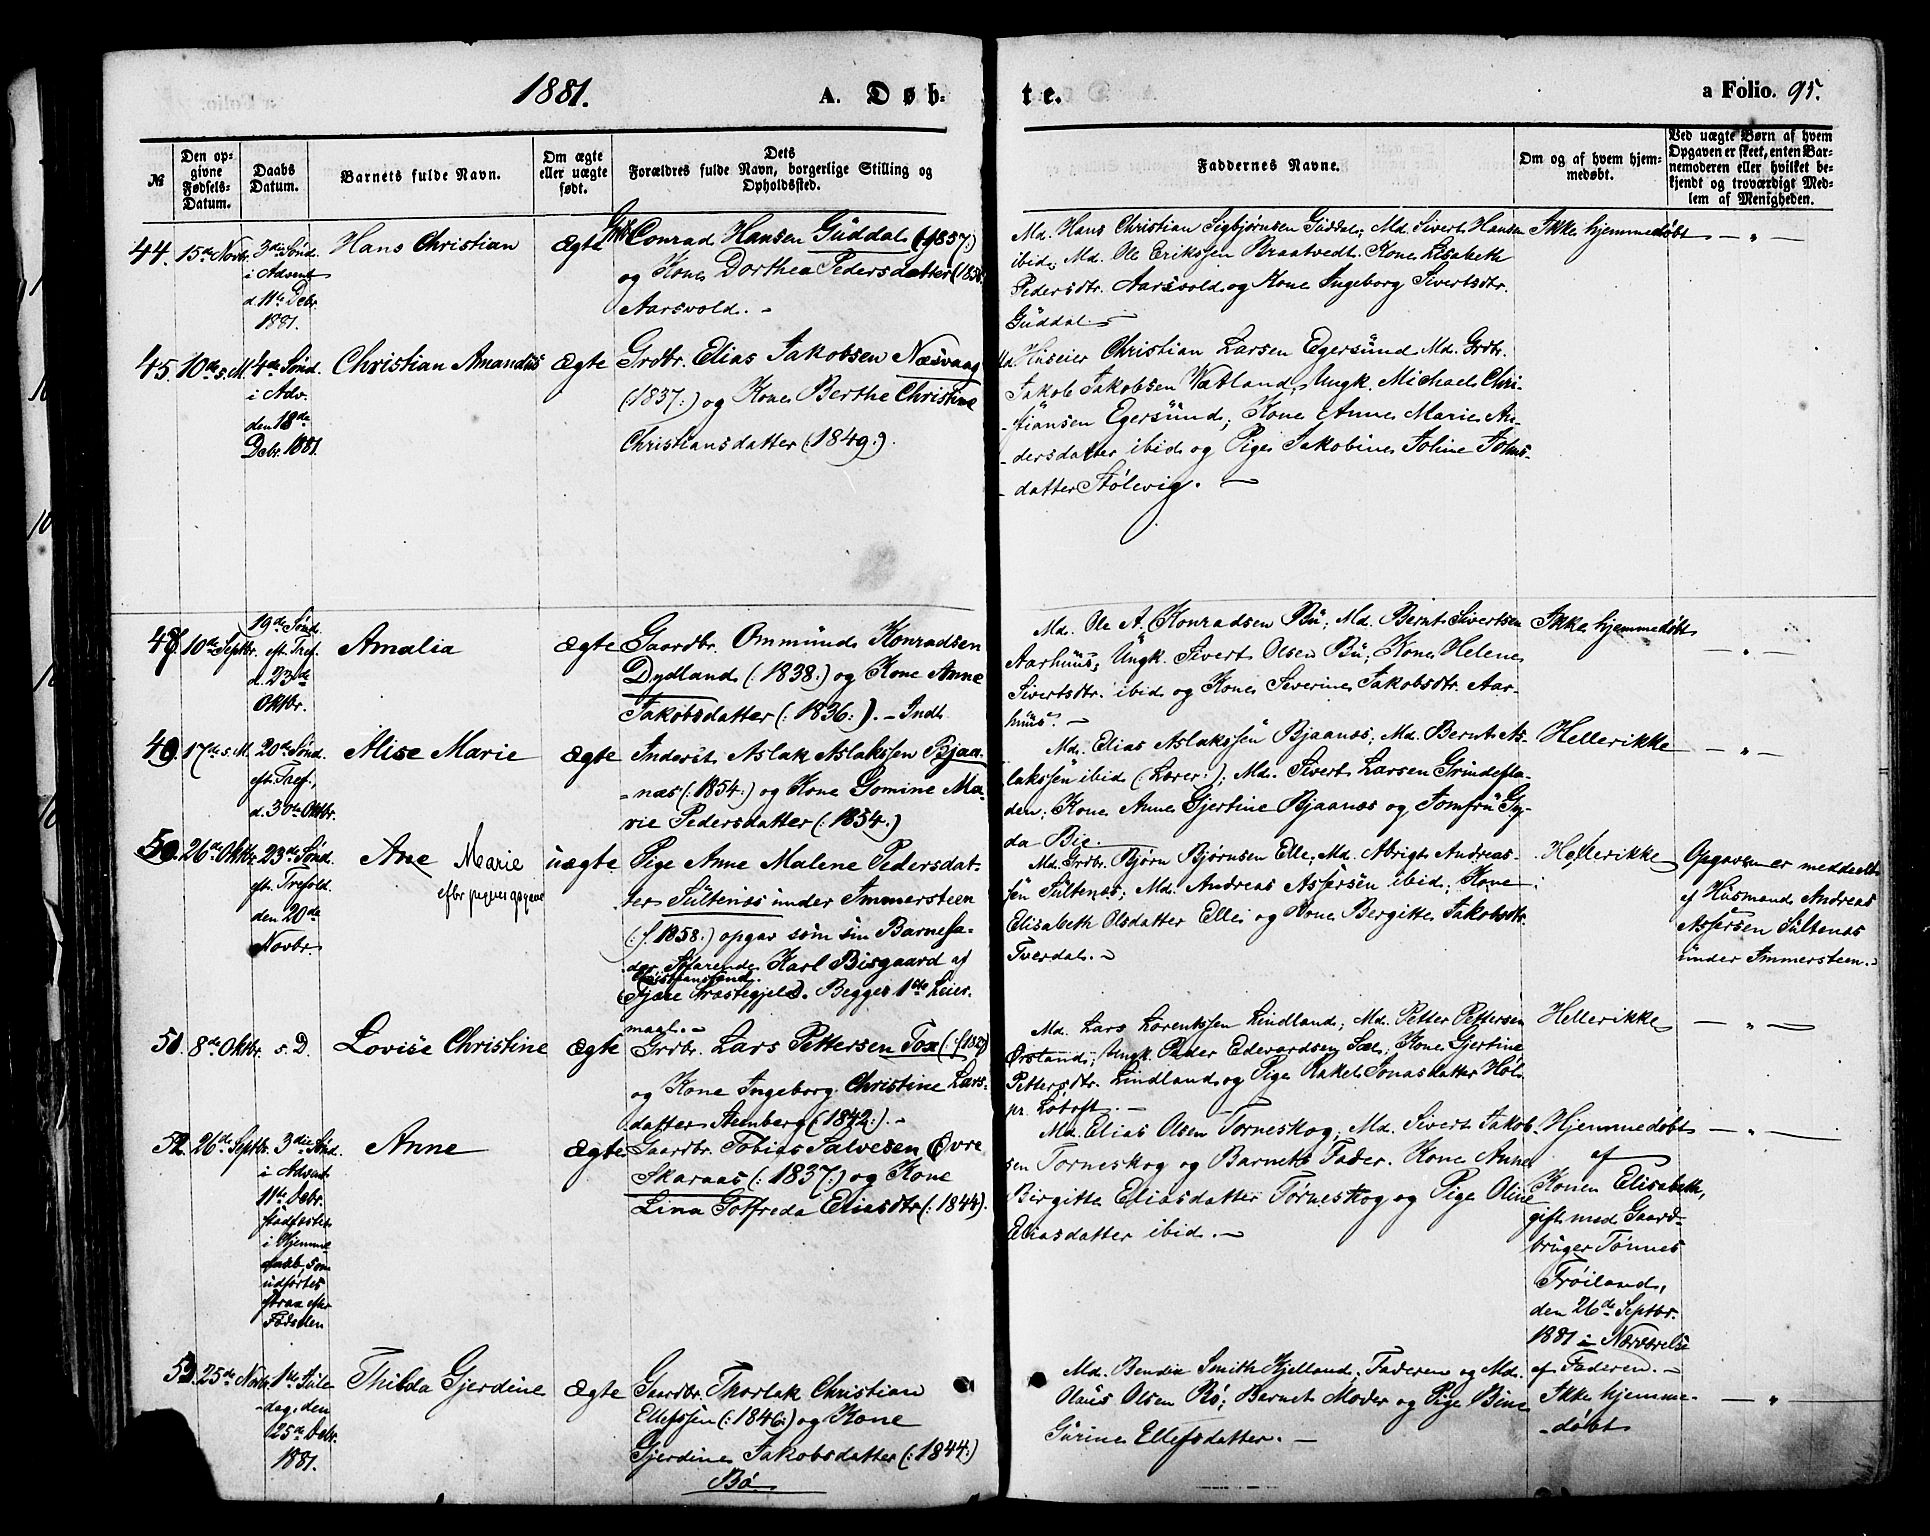 1881.
A. Døb-
te.
a Folio. 95.
№
Den op-
givne
Fødsels-
Datum.
Daabs
Datum.
Barnets fulde Navn.
Om ægte
eller uægte
født.
Dets
Forældres fulde Navn, borgerlige Stilling og
Opholdssted.
Faddernes Navne.
Om og af hvem hjem-
medøbt.
Ved uægte Børn af hvem
Opgaven er skeet, enten Bar-
nemoderen eller hvilket be-
kjendt og troværdigt Med-
lem af Menigheden.
44.
15de Novbr.
3die Sønd.
i Advent
d. 11te Debr.
1881.
Hans Christian
Ægte
Conrad Hansen Güddal (:f. 1857:)
og Kone Dorthea Pedersdatter
Aarsvold. -
Md. Hans Christian Sigbjørnsen Güddal; Md. Sivert Hansen
ibid; Md. Ole Erikssen Braatvedt. Kone Lisabeth
Pedersdtr. Aarsvold og Kone Ingeborg Sivertsdtr.
Güddal. -
Ikke hjemmedøbt
— " —
45.
10de s. M.
4de Sønd.
i Adv.
den 18de
Debr. 1881
Christian Amandüs
Ægte
Grdbr. Elias Jakobsen Næsvaag
(:1837:) og Kone Berthe Christine
Christiansdatter (:1849:).
Huseier Christian Larsen Egersünd Md. Grdbr.
Jakob Jakobsen Vatland, Ungk. Michael Chri-
stiansen Egersünd; Kone Anne Marie An-
dersdatter ibid og Pige Jakobine Joline Johns-
datter Stølevig. —
48.
10de Septbr.
19de Sønd.
eft. Tref.
d. 23de
Oktbr.
Amalia
Ægte
Gaardbr. Ommünd Konradsen
Dydland (:1838:) og Kone Anne
Jakobsdatter (:1836:). -
Md. Ole A. Konradsen Bü; Md. Bernt Sivertsen
Aarhüüs; Ungk. Sivert Olsen Bü; Kone Helene
Sivertsdtr. ibid og Kone Severine Jakobsdtr. Aar-
hüüs. -
Ikke hjemmedøbt
— " —
49.
17de s. M.
20de Sønd.
eft. Tref.,
d. 30te Oktbr.
Alise Marie
Ægte
Inderst Aslak Aslakssen Bjaa-
næs (:1854:) og Kone Gomine Ma-
rie Pedersdatter (:1854.)
Md. Elias Aslakssen Bjaanæs; Md. Bernt As-
lakssen ibid (Lærer:); Md. Sivert Larsen Grindefla-
den; Kone Anne Gjertine Bjaanæs og Jomfrü Gy-
da Bie.
Hellerikke
— " —
50.
26de Oktbr.
23de Sønd.
eft. Trefold.
den 20de
Novbr.
Ane Marie
uægte
Pige Anne Malene Pedersdat-
ter Sültenæs ünder Immersteen
(:f. 1858:) opgav som sin Barnefa-
der Karl Bisgaard af
Christianssand
Præstegjeld. Begges 1ste Leier-
maal. -
Md. Grdbr. Bjørn Bjørnsen Elle; Md. Abrigt Andreas-
sen Sültenæs; Md. Andreas Assersen ibid; Kone
Elisabeth Olsdatter Elle og Kone Bergitte Jakobsdtr.
Tverdal. -
Hellerikke
Opgaven er meddeelt
af Hüsmand Andreas
Assersen Sültenæs
ünder Immersteen. -
51
8de Oktbr.
s. D.
Lovise Christine
Ægte
Grdbr. Lars Pettersen Foss
og Kone Ingeborg Christine Lars-
datter Stemberg (:1842:). -
Md. Lars Lorentssen Lindland; Md. Petter Pettersen
Ørsland; Ungk. Peder Edevardsen Sæl; Kone Gjertine
Pettersdtr. Lindland og Pige Rakel Jonasdatter Hol
pr. Lotoft. -
Hellerikke
— " —
52
26de Septbr.
3die Sønd.
i Advent
11te Debr.
stadfæstet
i Hjemme-
daab, som
udførtes
strax efter
Fødselen
Anne
Ægte
Gaardbr. Tobias Salvesen Øvre
Skaraas (:1837:) og Kone
Lina Gotfreda Eliasdtr (:1844).
Md. Elias Olsen Torneskog; Md. Sivert Jakob-
sen Torneskog og Barnets Fader. Kone Anne
Birgitte Eliasdatter Torneskog og Pige Oline
Eliasdatter ibid. -
Hjemmedøbt
af
Konen Elisabeth,
gift med Gaard-
bruger Tønnes
Frøiland,
den 26de Septbr.
1881 i Nærværelse
af Faderen. -
— " —
53
25de Novbr.
1ste Jüle-
dag, den
25de Debr.
1881.
Thilda Gjerdine
Ægte
Gaardbr. Thorlak Christian
Ellefssen (:1846:) og Kone
Gjerdine Jakobsdatter (:1844:)
Bø
Md. Bendix Smith Kjelland; Faderen og Md.
Olaüs Olsen Bø; Barnets Moder og Pige Bine
Gürine Ellefsdatter. —
Ikke hjemme-
døbt
— " —